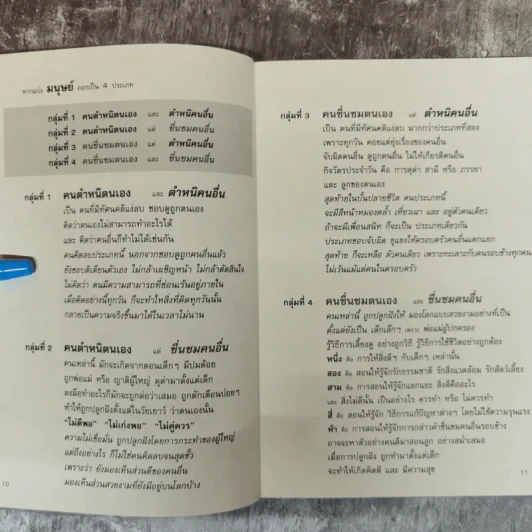 หากแบ่ง มนุษย์ ออกเป็น 4 ประเภท
กลุ่มที่ 1 คนตำหนิตนเอง และ ตำหนิคนอื่น
กลุ่มที่ 2 คนตำหนิตนเอง แต่ ชื่นชมคนอื่น
กลุ่มที่ 3 คนชื่นชมตนเอง แต่ ตำหนิคนอื่น
กลุ่มที่ 4 คนชื่นชมตนเอง และ ชื่นชมคนอื่น
กลุ่มที่ 1 คนตำหนิตนเอง และ ตำหนิคนอื่น
เป็น คนที่มีทัศนคติแง่ลบ ชอบดูถูกตนเอง
คิดว่าตนเองไม่สามารถทำอะไรได้
และ คิดว่าคนอื่นก็ทำไม่ได้เช่นกัน
คนคิดลบประเภทนี้ นอกจากชอบดูถูกคนอื่นแล้ว
ยังชอบติเตียนตัวเอง ไม่กล้าเผชิญหน้า ไม่กล้าตัดสินใจ
ไม่คิดว่า ตนมีความสามารถที่ซ่อนเร้นอยู่ภายใน
เมื่อคิดอย่างนี้ทุกวัน ก็จะทำให้สิ่งที่คิดทุกวันนั้น
กลายเป็นความจริงขึ้นมาได้ในเวลาไม่นาน
กลุ่มที่ 2 คนตำหนิตนเอง แต่ ชื่นชมคนอื่น
คนเหล่านี้ มักจะเกิดจากตอนเด็กๆ มีปมด้อย
ถูกพ่อแม่ หรือ ญาติผู้ใหญ่ ดุด่ามาตั้งแต่เด็ก
ลงมือทำอะไรก็มักจะถูกต่อว่าเสมอ ถูกตักเตือนบ่อยๆ
ทำให้ถูกปลูกฝังตั้งแต่ในวัยเยาว์ ว่าตนเองนั้น
"ไม่ดีพอ" "ไม่เก่งพอ" "ไม่คู่ควร"
ความไม่เชื่อมั่น ถูกปลูกฝังโดยการกระทำของผู้ใหญ่
แต่ถึงอย่างไร ก็ไม่ใช่คนคิดลบจนสุดขั้ว
เพราะว่า ยังมองเห็นส่วนดีของคนอื่น
มองเห็นส่วนสวยงามที่ยังมีอยู่บนโลกบ้าง
10
กลุ่มที่ 3 คนชื่นชมตนเอง แต่ ตำหนิคนอื่น
เป็น คนที่มีทัศนคติแง่ลบ มากกว่าประเภทที่สอง
เพราะทุกวัน คอยแต่ยุ่งเรื่องของคนอื่น
จับผิดคนอื่น ดูถูกคนอื่น ไม่ให้เกียรติคนอื่น
กิจวัตรประจำวัน คือ การดุด่า สามี หรือ ภรรยา
และ ลูกของตนเอง
สุดท้ายในบั้นปลายชีวิต คนประเภทนี้
จะมีสีหน้าหมองคล้ำ เหี่ยวเฉา และ อยู่ตัวคนเดียว
ถ้าจะมีเพื่อนสนิท ก็จะเป็น ประเภทเดียวกัน
ประเภทชอบจับผิด ยุแยงให้ครอบครัวคนอื่นแตกแยก
สุดท้าย ก็จะเหลือ ตัวคนเดียว เพราะทะเลาะกับคนรอบข้างทุกคน
ไม่เว้นแม้แต่คนในครอบครัว
กลุ่มที่ 4 คนชื่นชมตนเอง และ ชื่นชมคนอื่น
คนเหล่านี้ ถูกปลูกฝังให้ มองโลกแบบสวยงามอย่างที่เป็น
ตั้งแต่ยังเป็น เด็กเล็กๆ เพราะ พ่อแม่ผู้ปกครอง
รู้วิธีการเลี้ยงดู อย่างถูกวิธี รู้วิธีการใช้ชีวิตอย่างถูกต้อง
หนึ่ง คือ การให้สิ่งดีๆ กับเด็กๆ เหล่านั้น
สอง คือ สอนให้รู้จักรักธรรมชาติ รักสิ่งแวดล้อม รักสัตว์เลี้ยง
สาม คือ การสอนให้รู้จักแยกแยะ สิ่งดีคืออะไร
และ สิ่งไม่ดีนั้น เป็นอย่างไร ควรทำ หรือ ไม่ควรทำ
สี่ คือ สอนให้รู้จัก วิธีการแก้ปัญหาต่างๆ โดยไม่ใช้ความรุนแรง
ห้า คือ การสอนให้รู้จักการกล่าวคำชื่นชมคนอื่นรอบข้าง
อาจจะหาตัวอย่างคนดีมาสอนลูก อย่างสม่ำเสมอ
เมื่อการปลูกฝัง ถูกทำมาตั้งแต่เด็ก
จะทำให้เกิดคิดดี และ มีความสุข
11